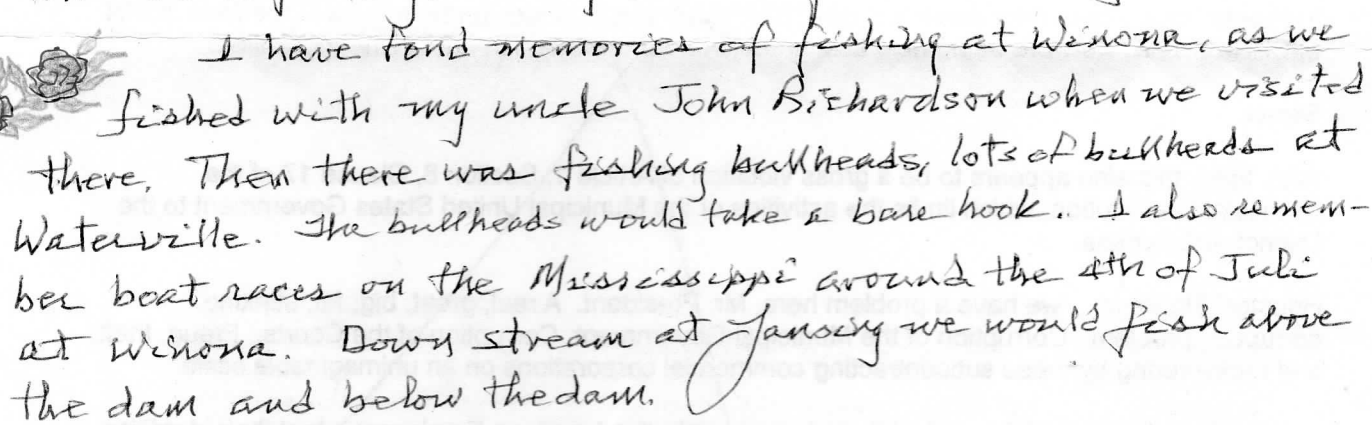 I have fond memories of fishing at Winona, as we
fished with my uncle John Richardson when we visited
there. Then there was fishing bullheads, lots of bullheads at
Waterville. The bullheads would take a bare hook. I also remem-
ber boat races on the Mississippi around the 4th of Juli
at Winona. Down stream at Lansing we would fish above
the dam and below the dam.